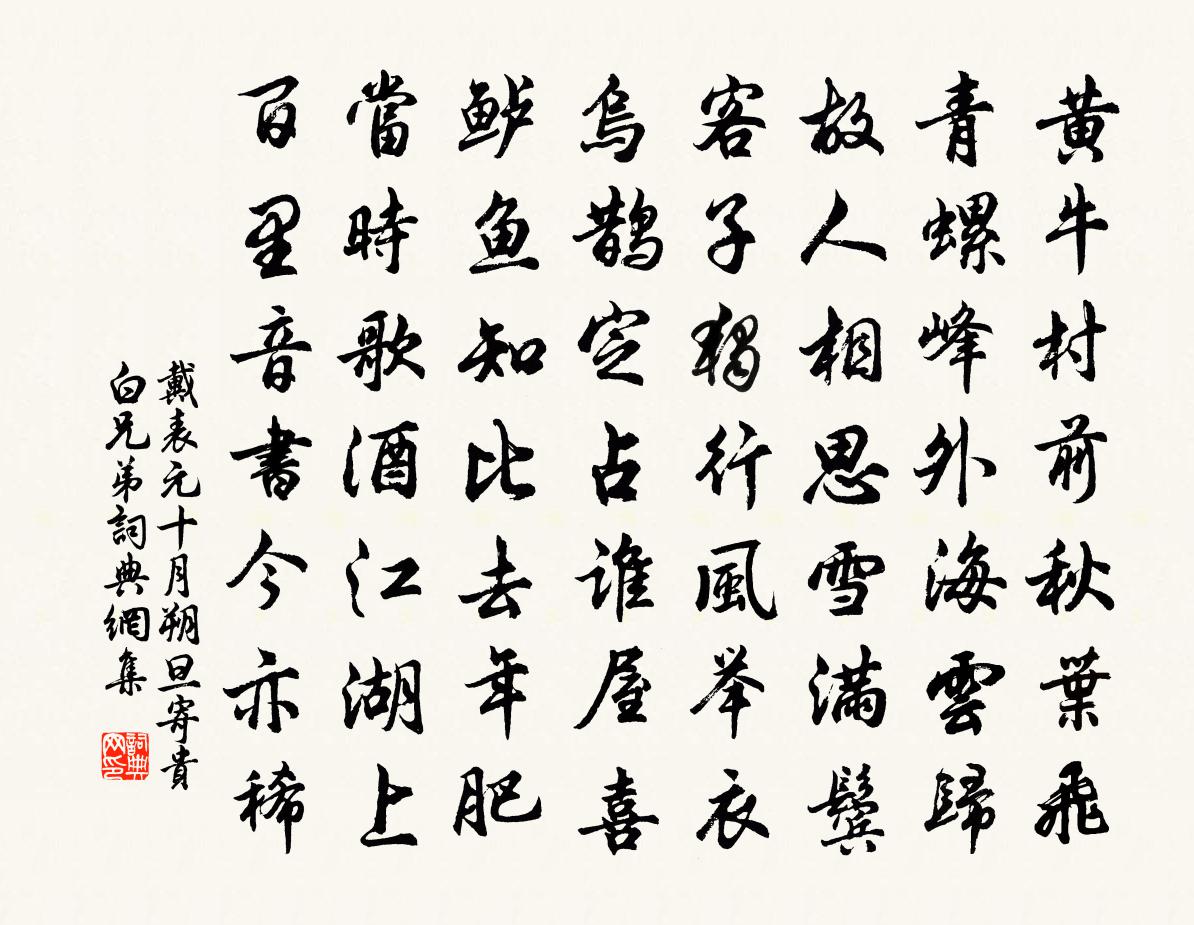 黄牛村前秋葉飛
青螺峰外海雲歸
故人相思雪滿鬓
客子獨行風举衣
烏鹊定占谁屋喜
鲈魚知比去年肥
當時歌酒江湖上
百里音書今亦稀
戴表元十月朔旦寄貴
白兄弟詞典網集
詞典网印